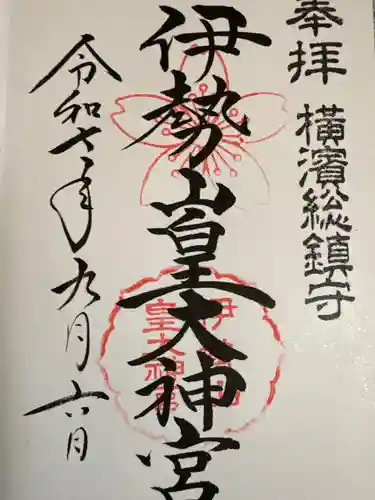 奉拝
横濱総鎮守
伊勢山皇大神宮
伊勢山
皇大神宮
令和七年九月六日